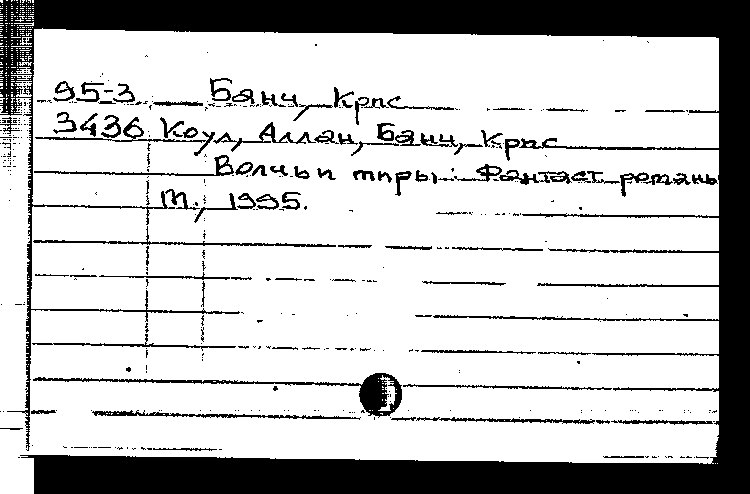 95-3 Банч, Крис
3436 Коул, Аллан, Банч, Крис
Волчьи миры: Фантаст. романы
М., 1995.